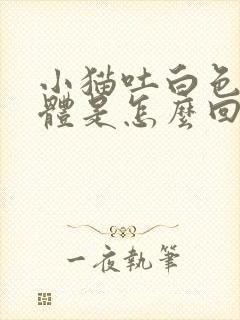 小猫吐白色
體是怎麼回
一夜執筆